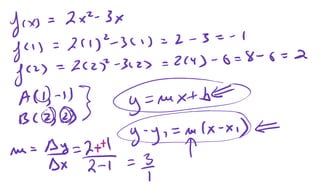 f(x) = 2x² - 3x
f(1) = 2(1)² - 3(1) = 2 - 3 = -1
f(2) = 2(2)² - 3(2) = 2(4) - 6 = 8 - 6 = 2
A(1, -1)
B(2, 2)
y = mx + b
y - y₁ = m(x - x₁)
m = Δy/Δx = 2+1/2-1 = 3/1